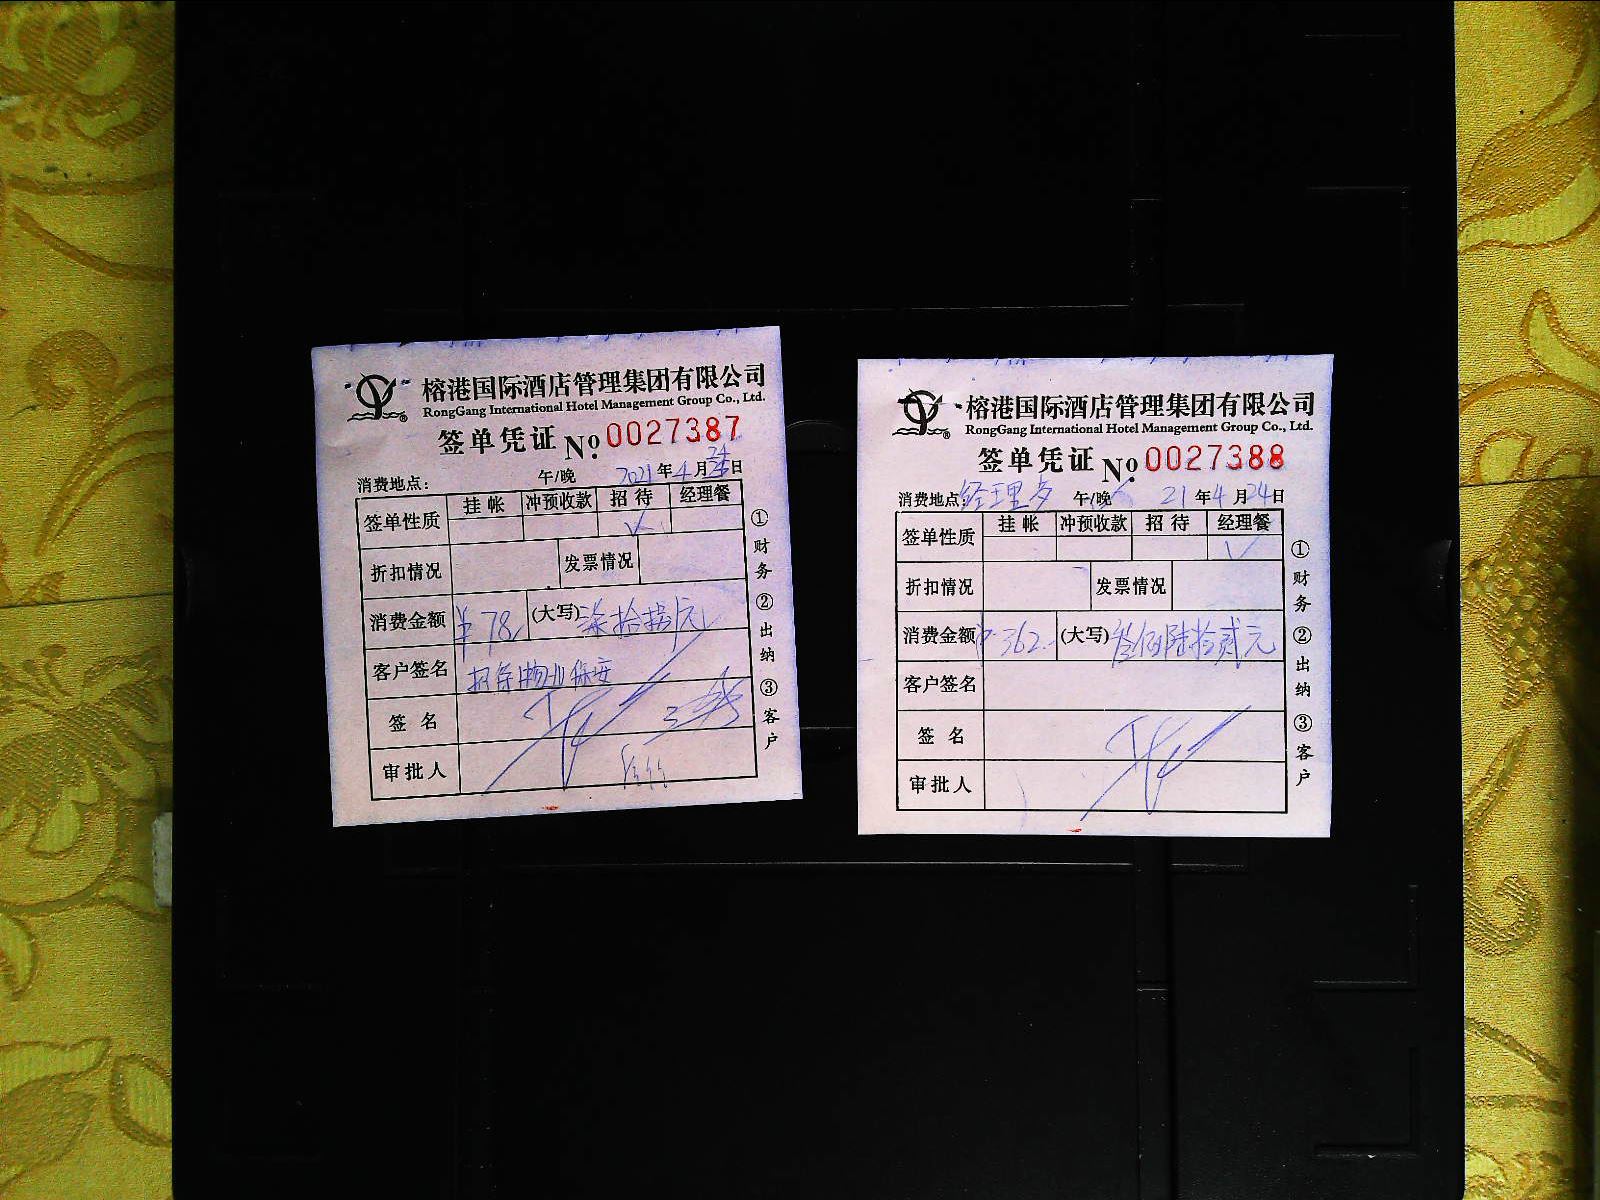 榕港国际酒店管理集团有限公司
RongGang International Hotel Management Group Co., Ltd.
签单凭证 No. 0027387
消费地点: 午/晚 2021年4月24日
签单性质 挂帐 冲预收款 招待 经理餐
✓
折扣情况 发票情况
消费金额 ¥78 (大写) 柒拾捌元
客户签名 招待物业保安
签名
审批人
①财务 ②出纳 ③客户
榕港国际酒店管理集团有限公司
RongGang International Hotel Management Group Co., Ltd.
签单凭证 No. 0027388
消费地点: 经理 午/晚 21年4月24日
签单性质 挂帐 冲预收款 招待 经理餐
✓
折扣情况 发票情况
消费金额 ¥362 (大写) 叁佰陆拾贰元
客户签名
签名
审批人
①财务 ②出纳 ③客户